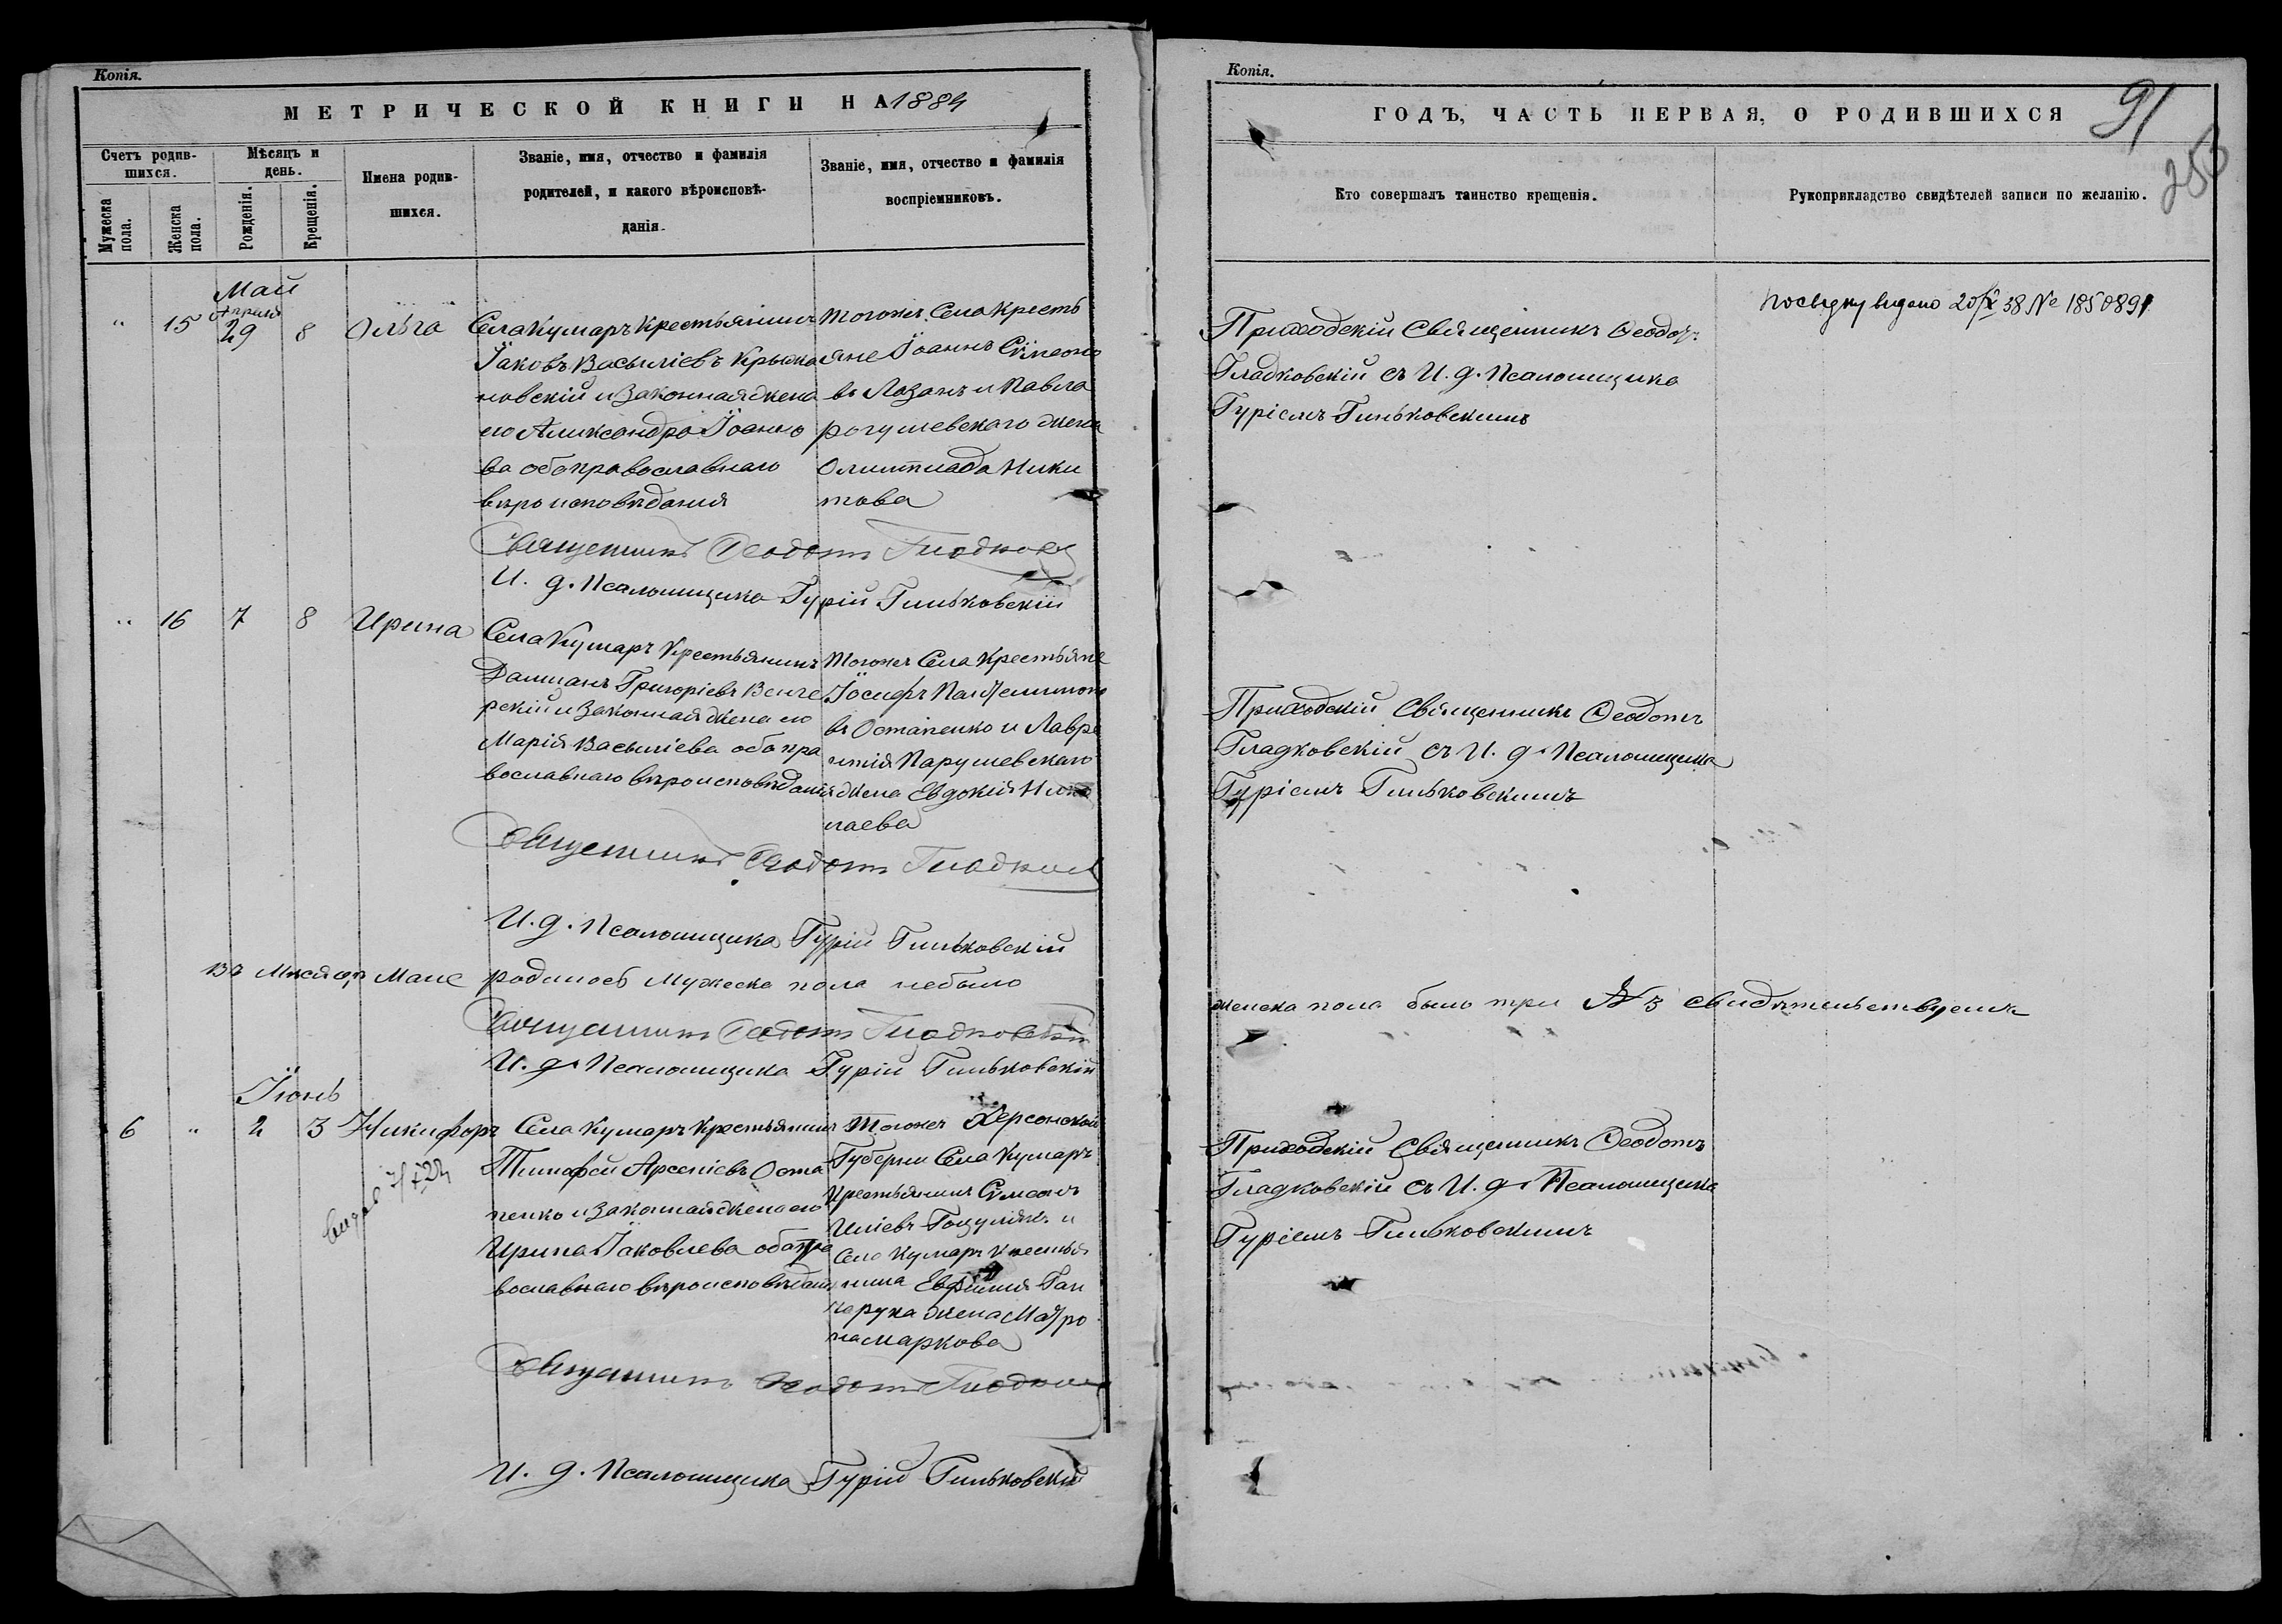 Копія.
МЕТРИЧЕСКОЙ КНИГИ НА 1884
Счетъ родив-
шихся.
Мѣсяцъ и
день.
Имена родив-
шихся.
Званіе, имя, отчество и фамилія
родителей, и какого вѣроисповѣ-
данія.
Званіе, имя, отчество и фамилія
воспріемниковъ.
Мужеска
пола.
Женска
пола.
Рожденія.
Крещенія.
Май
Апрѣля
" 15 29 8 Ольга
Села Кумаръ Крестьянинъ
Іаковъ Васыліевъ Крыжа
новскій и Законная жена
его Александра Іоанно
ва оба православнаго
вѣроисповѣданія
Тогожъ Села Кресть
яне Іоаннъ Сімеоно
въ Лозанъ и Павла
рогушевскаго жена
Олимпиада Ники
това
Священникъ Феодотъ Гладков
И. д. Псаломщика Гурій Гиньковскій
" 16 7 8 Ирина
Села Кумаръ Крестьянинъ
Даміанъ Григоріевъ Венге
рскій и Законная жена его
Марія Васыліева оба пра
вославнаго вѣроисповѣданія
Тогожъ Села Крестьяне
Іосифъ Панѳелимоно
въ Остапенко и Лавре
нтія Парушевскаго
жена Евдокія Нико
лаева
Священникъ Феодотъ Гладков
И. д. Псаломщика Гурій Гиньковскій
Въ Мѣсяцѣ Маие родилось Мужеска пола небыло
Священникъ Феодотъ Гладковскій
И. д. Псаломщика Гурій Гиньковскій
Іюнь
6 " 2 3 Никифоръ
видав 7/
Села Кумаръ Крестьянинъ
Тимофей Арсеніевъ Оста
пенко и Законная жена его
Ирина Іаковлева оба пра
вославнаго вѣроисповѣдан
Тогожъ Херсонской
Губерніи Села Кумаръ
Крестьянинъ Сімеонъ
Иліевъ Гоцулякъ и
Села Кумаръ Крестья
нина Евфимія Ган
карука жена Матро
на Маркова
Священникъ Феодотъ Гладков
И. д. Псаломщика Гурій Гиньковскій
Копія.
ГОДЪ, ЧАСТЬ ПЕРВАЯ, О РОДИВШИХСЯ
91
253
Кто совершалъ таинство крещенія.
Рукоприкладство свидѣтелей записи по желанію.
Посвідку видано 20/X 38 № 1850891
Приходскій Священникъ Феодотъ
Гладковскій съ И. д. Псаломщика
Гуріемъ Гиньковскимъ
Приходскій Священникъ Феодотъ
Гладковскій съ И. д. Псаломщика
Гуріемъ Гиньковскимъ
женска пола было три № 3 свидѣтельствуемъ
Приходскій Священникъ Феодотъ
Гладковскій съ И. д. Псаломщика
Гуріемъ Гиньковскимъ